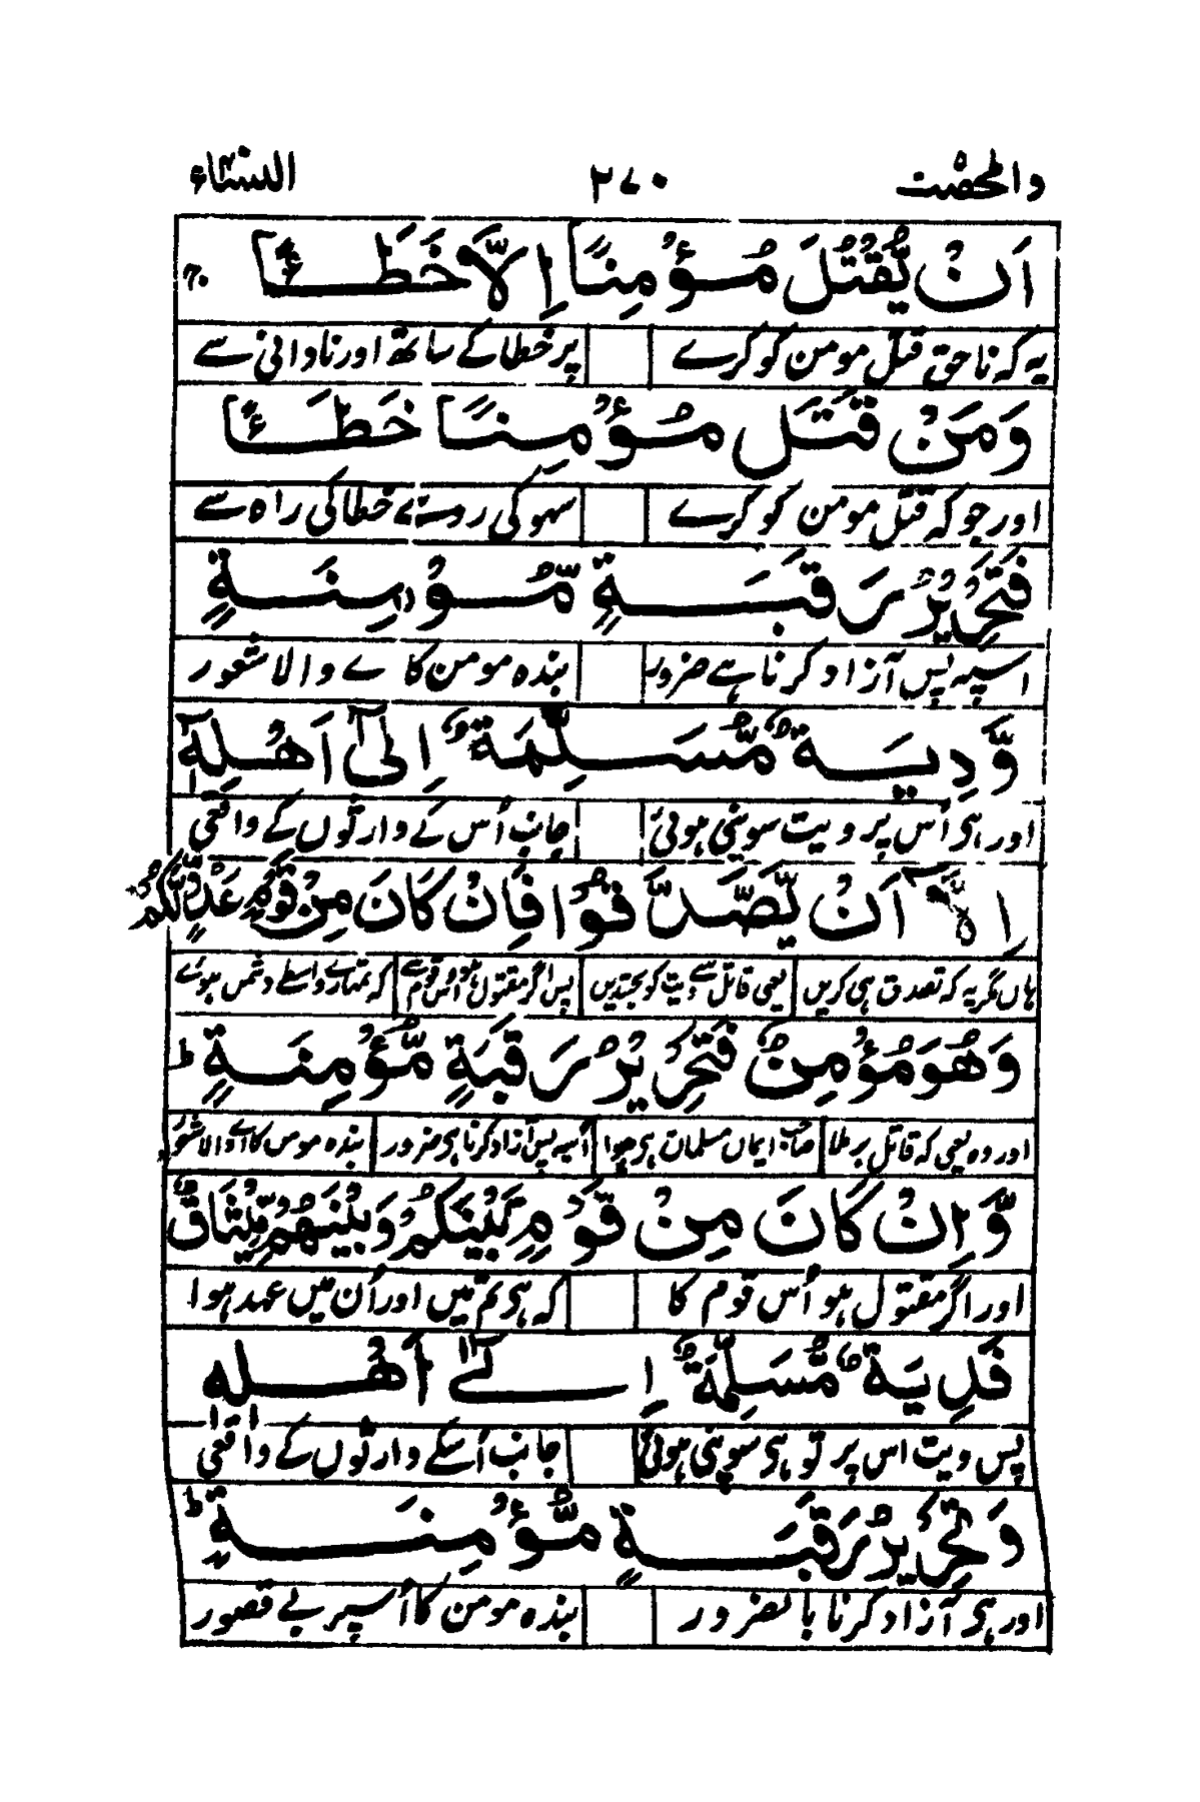 والمحصنت ۲۷۰ النساء
اَنْ يَّقْتُلَ مُؤْمِنًا اِلَّا خَطَـًٔا ۚ
یہ کہ ناحق قتل مومن کو کرے پر خطا کے ساتھ اور نادانی سے
وَمَنْ قَتَلَ مُؤْمِنًا خَطَـًٔا
اور جو کہ قتل مومن کو کرے سہو کی رو سے خطا کی راہ سے
فَتَحْرِيْرُ رَقَبَةٍ مُّؤْمِنَةٍ
اسپہ پس آزاد کرنا ہے ضرور بندہ مومن کا اے والا شعور
وَّدِيَةٌ مُّسَلَّمَةٌ اِلٰٓى اَهْلِهٖٓ
اور ہی اُس پر دیت سونپی ہوئی جانب اُس کے وارثوں کے واقعی
اِلَّآ اَنْ يَّصَّدَّقُوْا فَاِنْ كَانَ مِنْ قَوْمٍ عَدُوٍّ لَّكُمْ
ہاں مگر یہ کہ تصدق ہی کریں یعنی قاتل سے دیت کو بخشدیں پس اگر مقتول ہو اُس قوم سے کہ تمہارے واسطے دشمن ہوئے
وَهُوَ مُؤْمِنٌ فَتَحْرِيْرُ رَقَبَةٍ مُّؤْمِنَةٍ ۭ
اور وہ یعنی کہ قاتل برملا صاحب ایماں مسلمان ہی ہوا اُسپہ پس آزاد کرنا ہی ضرور بندہ مومن کا اے والا شعور
وَّاِنْ كَانَ مِنْ قَوْمٍۢ بَيْنَكُمْ وَبَيْنَهُمْ مِّيْثَاقٌ
اور اگر مقتول ہو اُس قوم کا کہ ہی تم میں اور اُن میں عہد ہوا
فَدِيَةٌ مُّسَلَّمَةٌ اِلٰٓى اَهْلِهٖ
پس دیت اس پر تو ہی سونپی ہوئی جانب اُسکے وارثوں کے واقعی
وَتَحْرِيْرُ رَقَبَةٍ مُّؤْمِنَةٍ ۭ
اور ہی آزاد کرنا بالضرور بندہ مومن کا اُسپر بے قصور